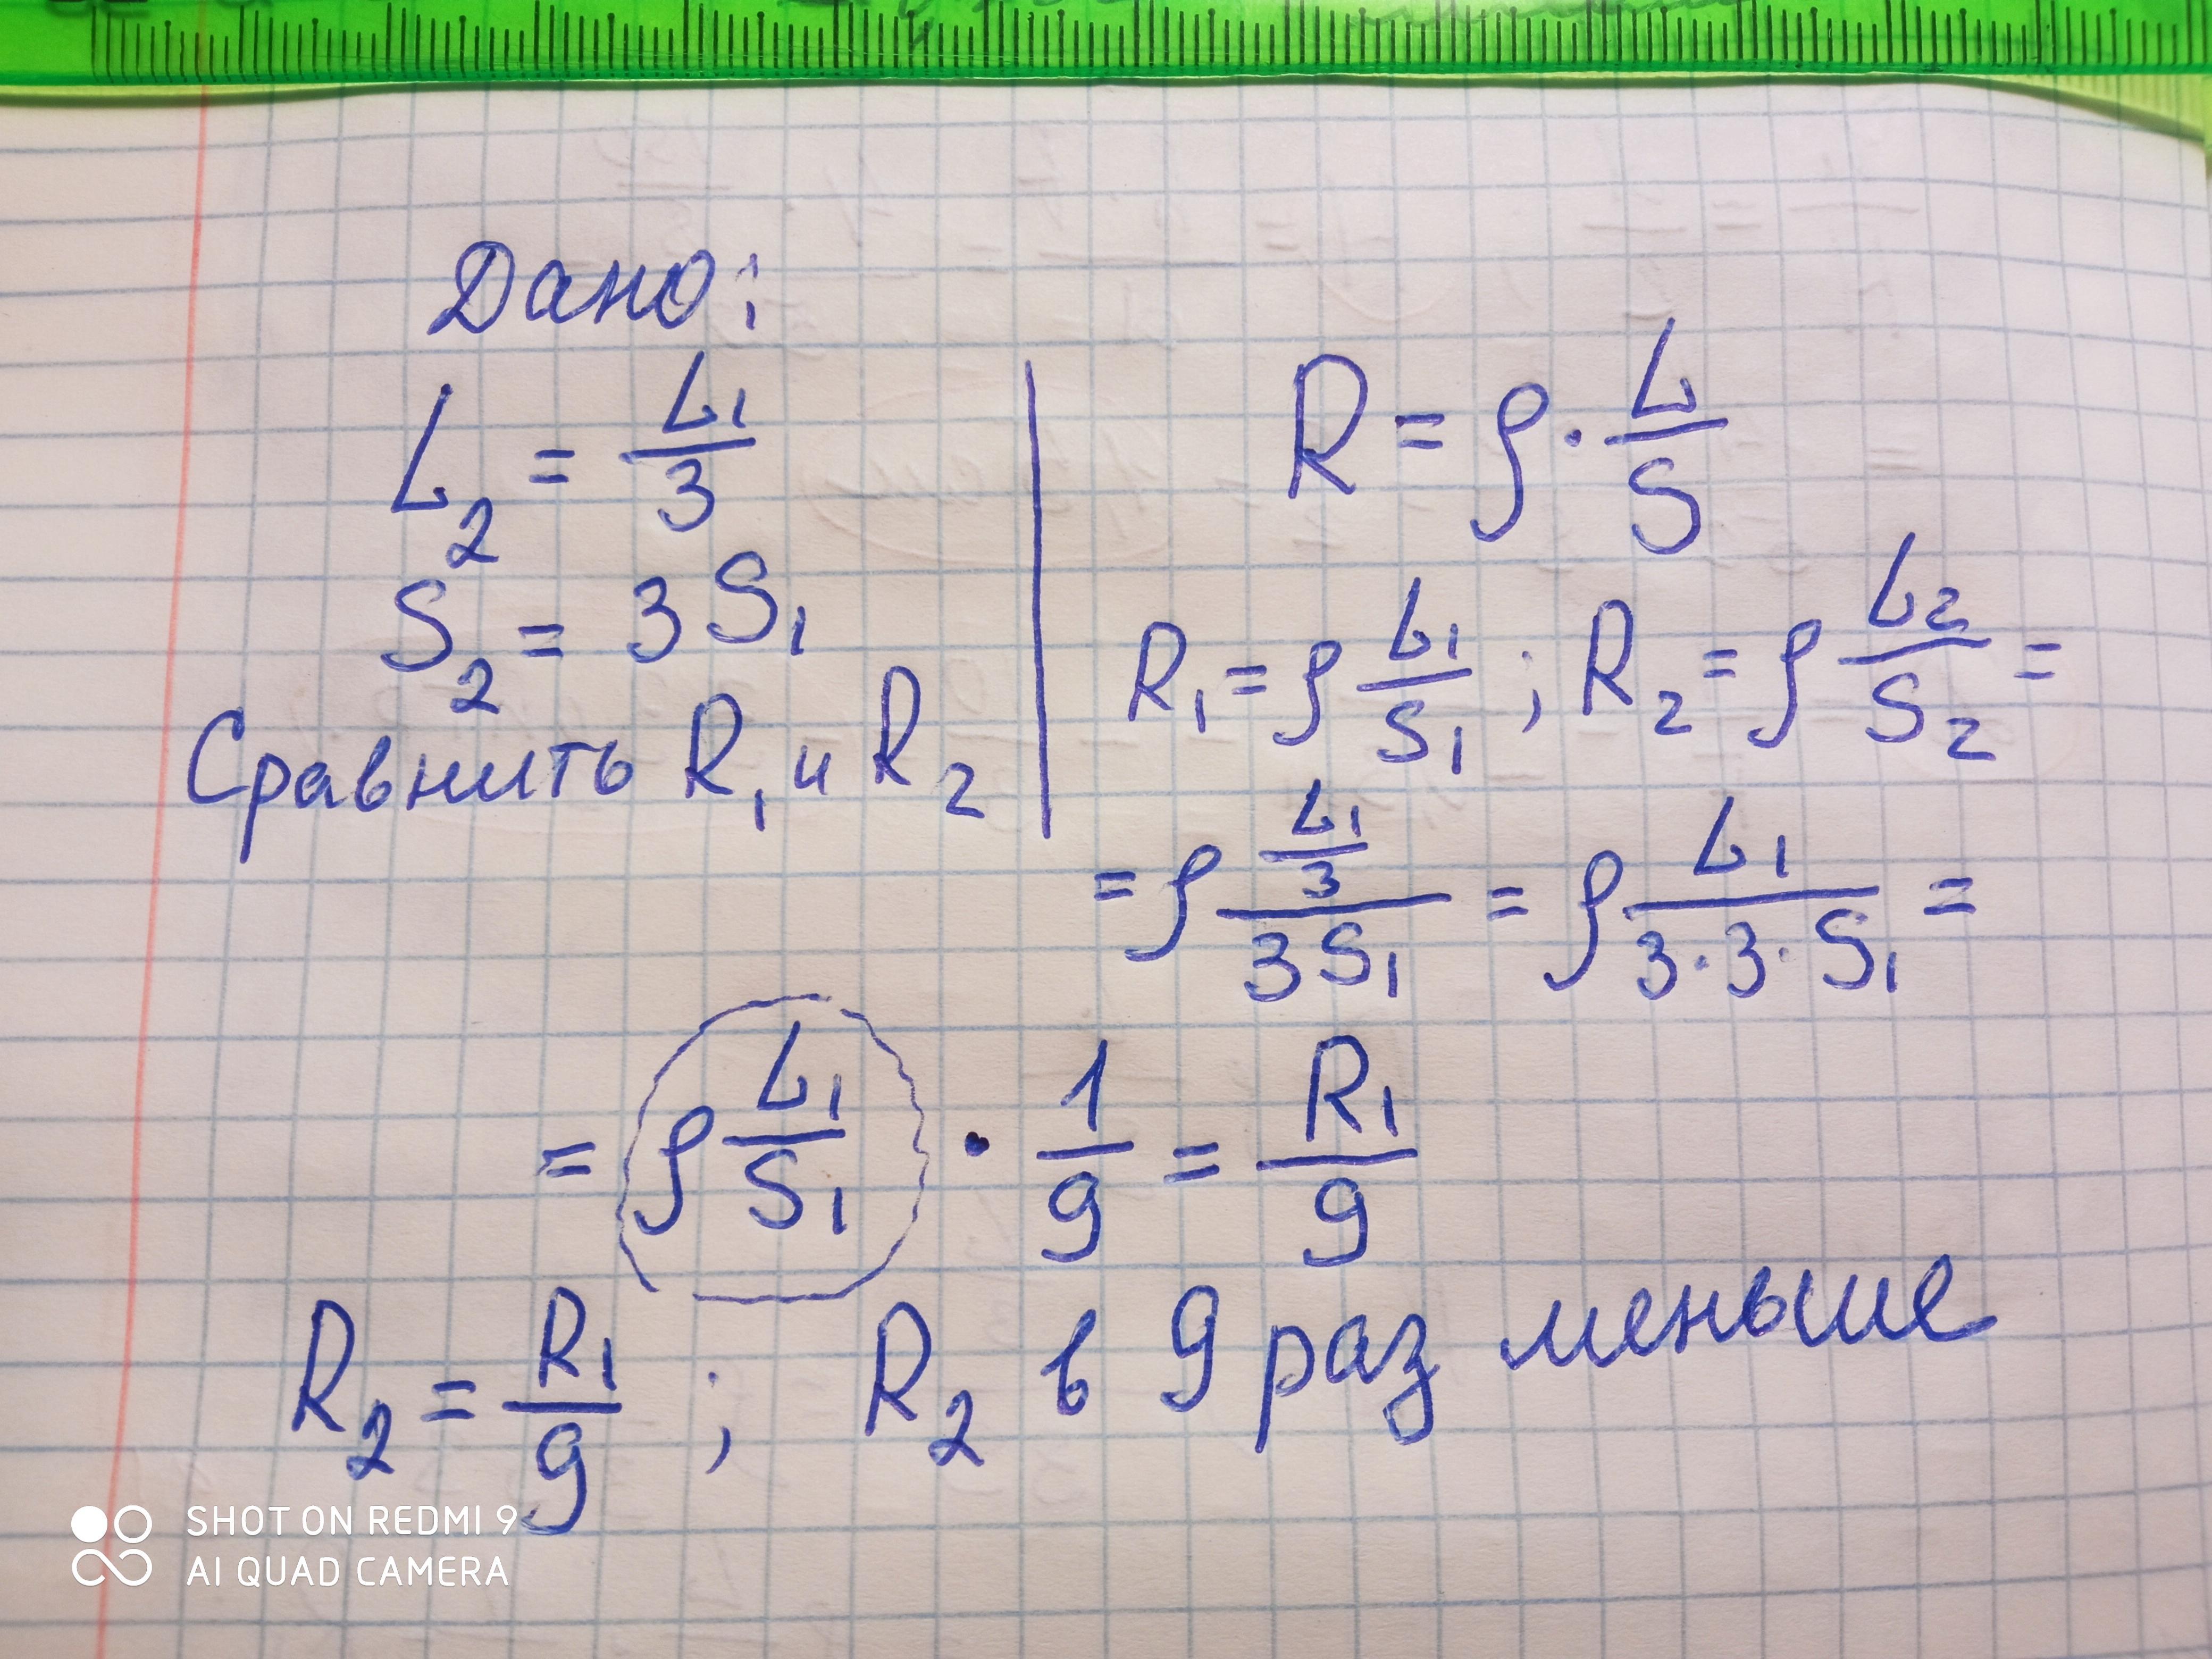 Дано:
L₂ = L₁/3
S₂ = 3S₁
Сравнить R₁ и R₂
R = ρ · L/S
R₁ = ρ L₁/S₁ ; R₂ = ρ L₂/S₂ =
= ρ (L₁/3)/(3S₁) = ρ L₁/(3·3·S₁) =
= ρ L₁/S₁ · 1/9 = R₁/9
R₂ = R₁/9 ; R₂ в 9 раз меньше
SHOT ON REDMI 9
AI QUAD CAMERA